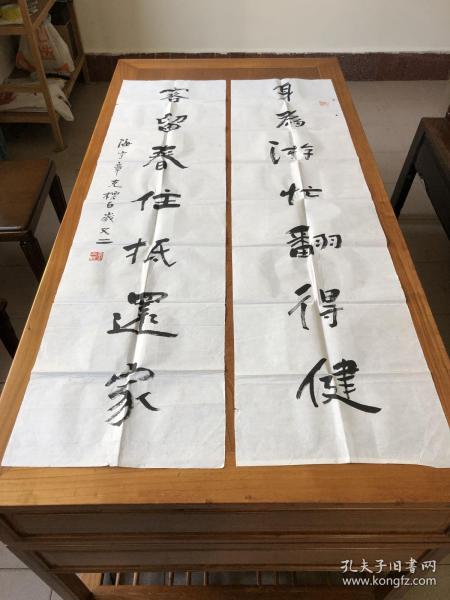 身為游忙翻得健
客留春住抵還家
海宁章克標百歲又二
孔夫子旧书网
www.kongfz.com